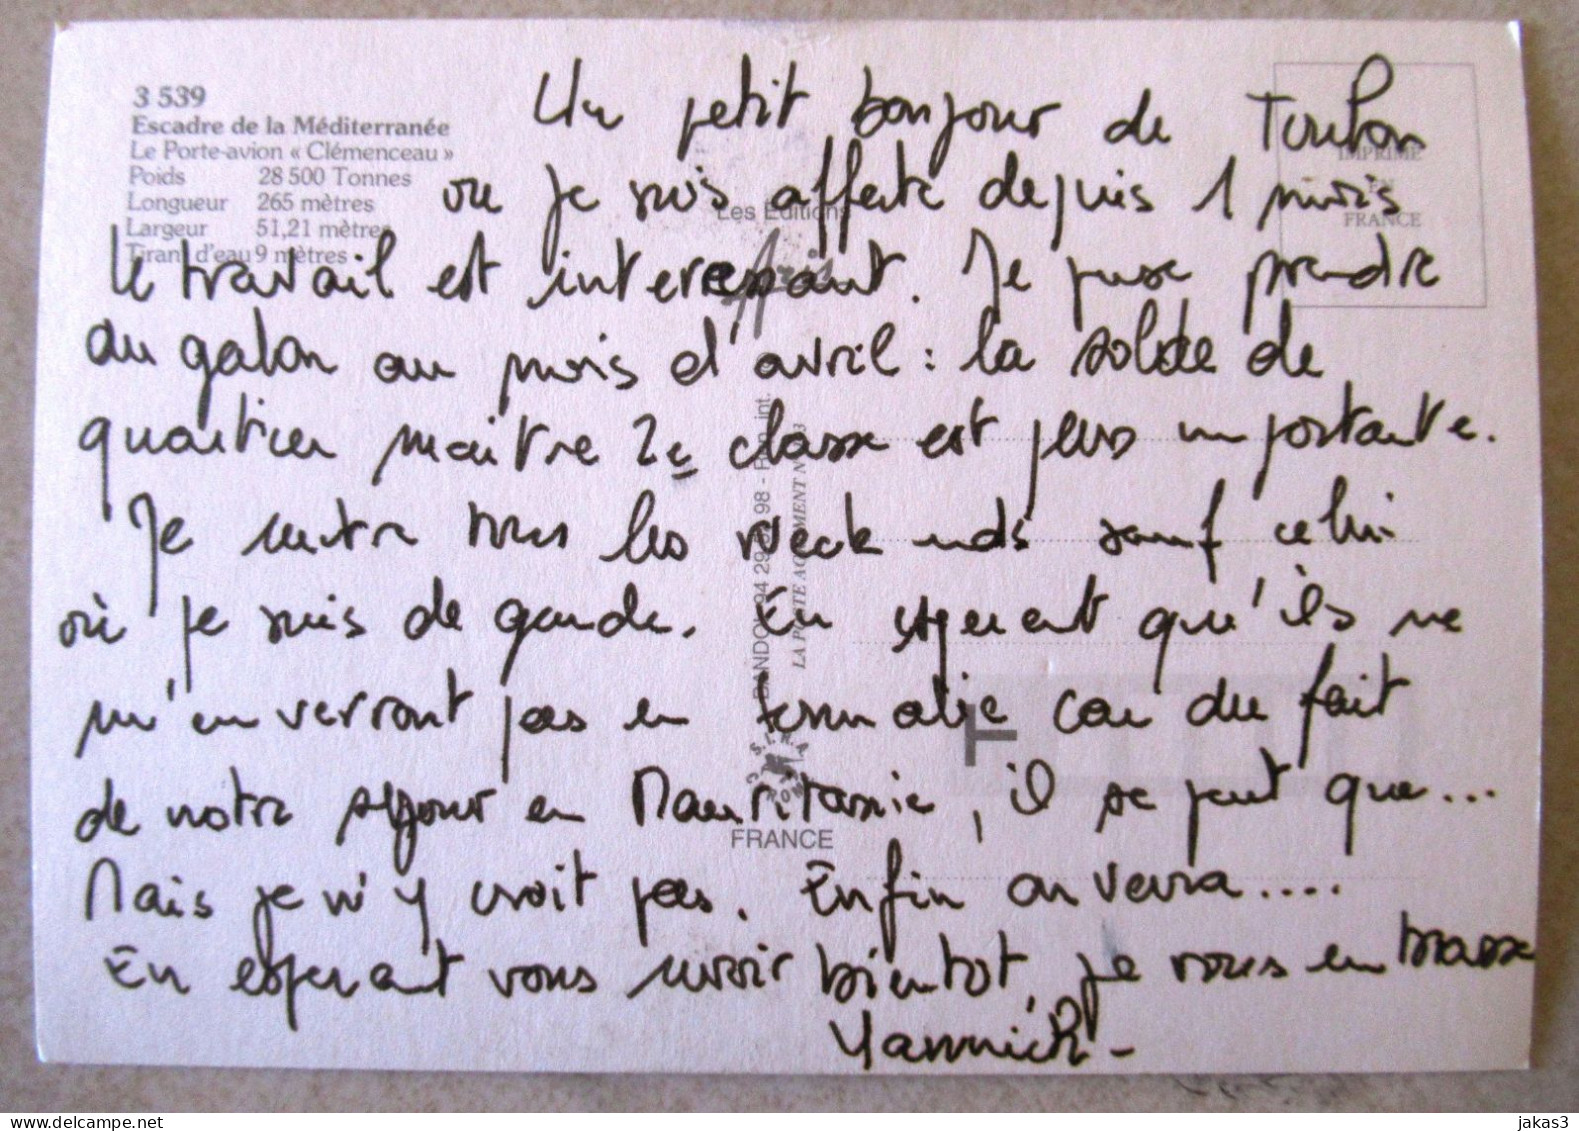 3 539
Escadre de la Méditerranée
Le Porte-avion « Clémenceau »
Poids 28 500 Tonnes
Longueur 265 mètres
Largeur 51,21 mètres
Tirant d'eau 9 mètres
IMPRIMÉ
EN
FRANCE
Les Éditions
Aris
BANDOL 94 29 98 - Rep. int.
LA POSTE AGRÉMENT N°
FRANCE
Un petit bonjour de Toulon
ou je suis affecte depuis 1 mois
Le travail est interessant. Je pense prendre
du galon au mois d'avril : la solde de
quartier maitre 2e classe est plus importante.
Je rentre tous les week ends sauf celui
où je suis de garde. En esperant qu'ils ne
m'enverront pas en Somalie car du fait
de notre sejour en Mauritanie, il se peut que...
Mais je n'y croit pas. Enfin on verra....
En esperant vous revoir bientot, je vous embrasse
Yannick-
jakas3